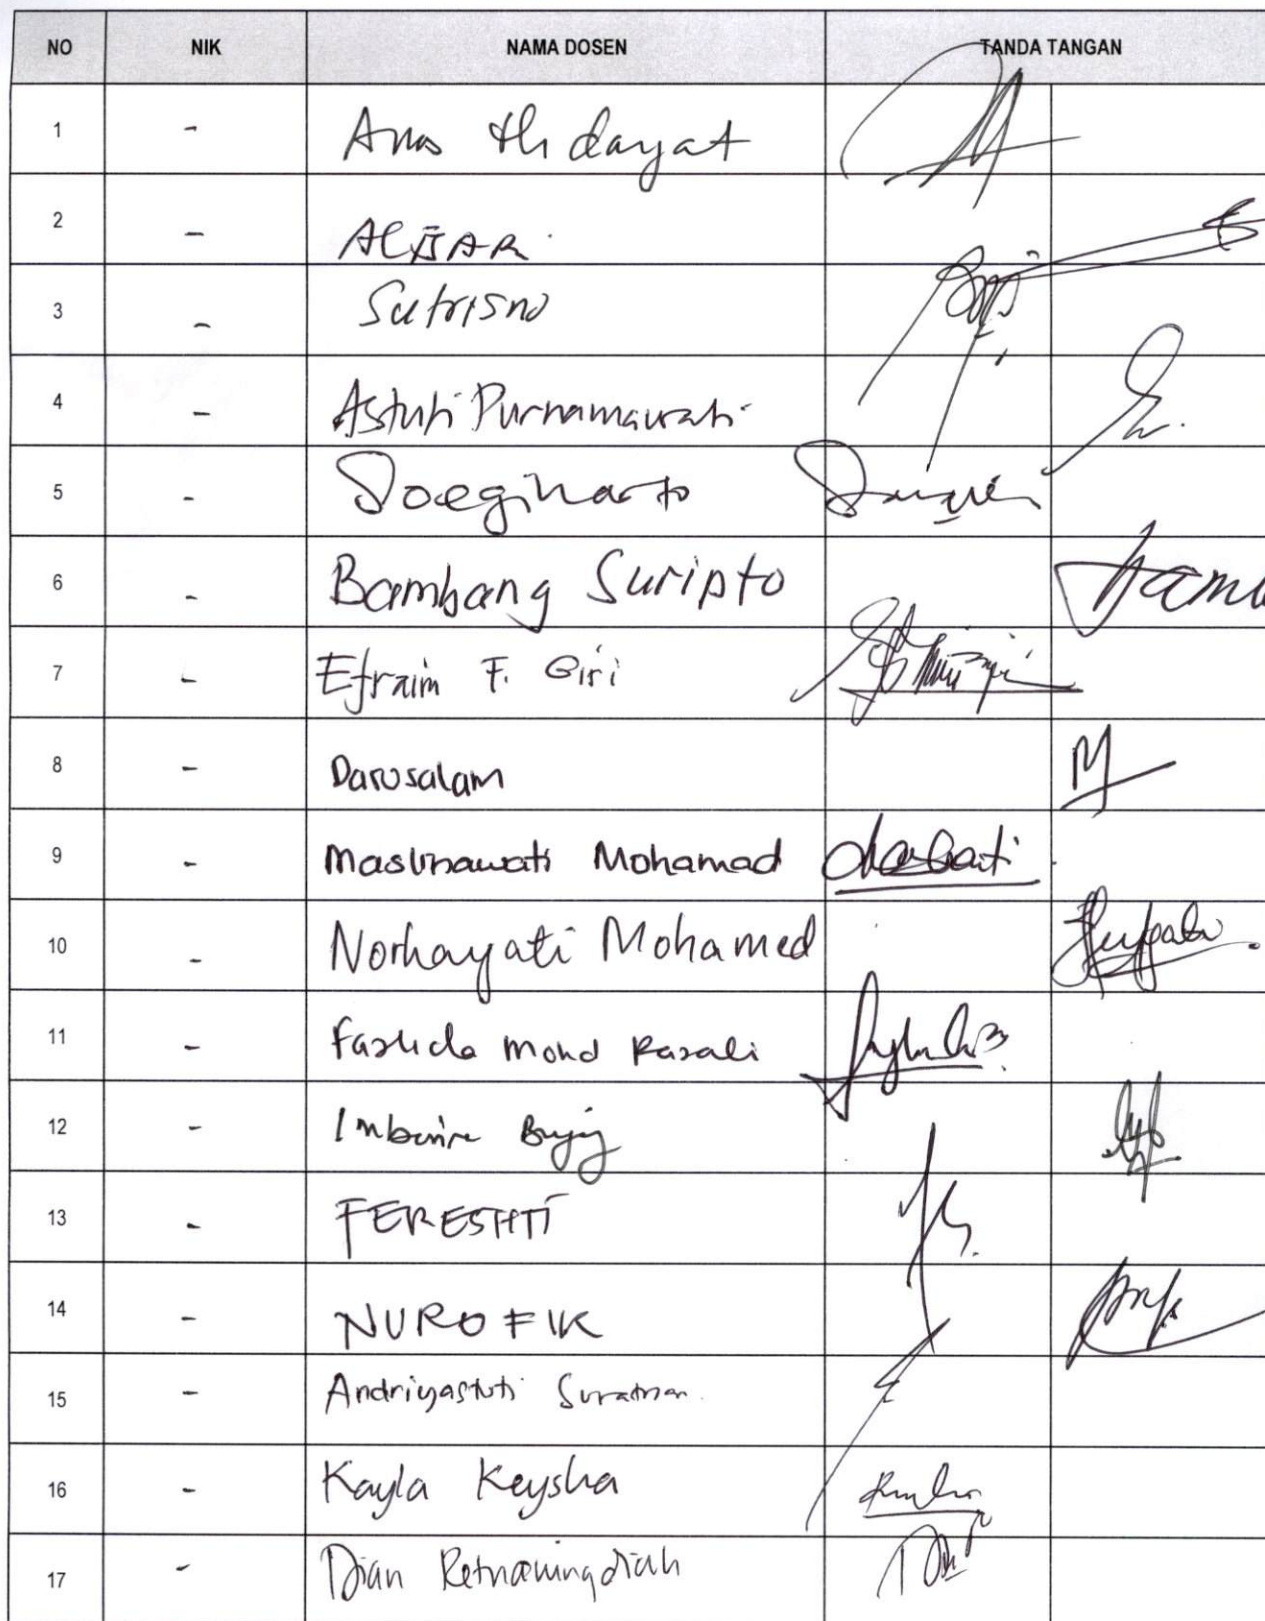 NO NIK NAMA DOSEN TANDA TANGAN
1 - Anas Hidayat
2 -
3 - Sutrisno
4 - Astuti Purnamawati
5 - Soeginarto
6 - Bambang Suripto
7 - Efraim F. Giri
8 - Darusalam
9 - Maslinawati Mohamad
10 - Norhayati Mohamed
11 - Fazlida Mohd Razali
12 -
13 - FERESHTI
14 - NUROFIK
15 - Andriyastuti Suratman
16 - Kayla Keysha
17 - Dian Retnaningdiah